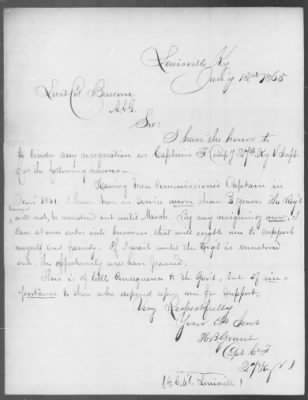 Louisville Ky
Jan'y 12th 1865
Lieut Col
A.A.G.
Sir:
I have the honor to
tender my resignation as Captain of 27th Ky V Inft
for the following reasons.
Having been commissioned Captain in
1861. I have been in service more than 3 years. The Reg't
will not be mustered out until March. By my resigning now I
can at once enter into business that will enable me to support
myself and family. If I wait until the Regt is mustered
out the opportunity will have passed.
This is of little consequence to the Govt. but of im-
portance to those who depend upon me for support.
Very Respectfully
Your Obt Servt
Capt Co
27 Ky V I